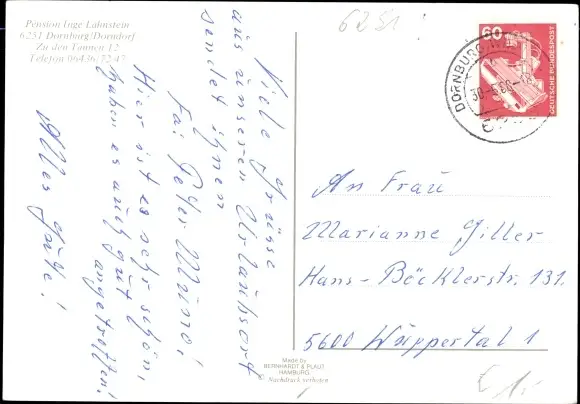 Pension Inge Lahnstein
6251 Dornburg/Dorndorf
Zu den Tannen 12
Telefon 06436/7247
Viele Grüsse
aus unseren Urlaubsort
sendet ihnen
Fa: Peter Munno!
Hier ist es sehr schön,
haben es auch gut
angetroffen!
Alles Gute!
6251
60
DEUTSCHE BUNDESPOST
DORNBURG
30.-5.80-18
An Frau
Marianne Giller
Hans-Böcklerstr. 131.
5600 Wuppertal 1
Made by
BERNHARDT & PLAUT
HAMBURG
Nachdruck verboten